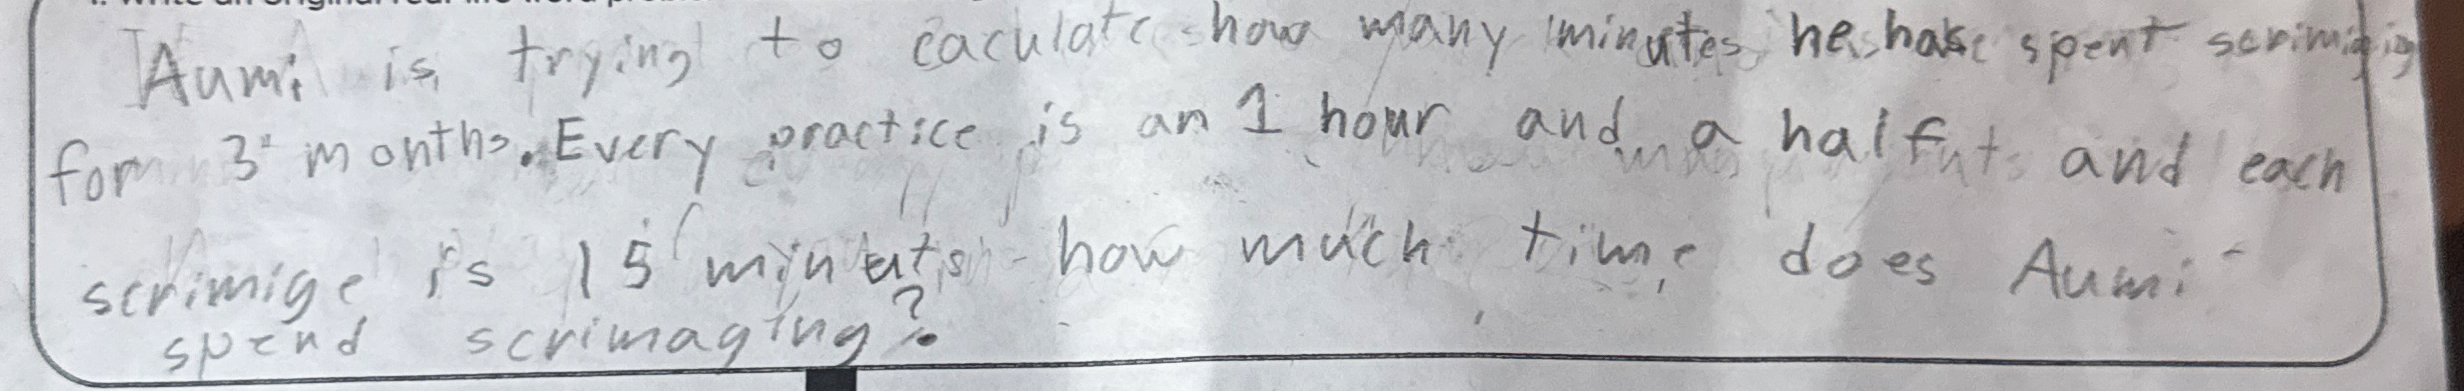 Aumi is trying to caculate how many minutes he has spent scrimigig
for 3 months. Every practice is an 1 hour and a half and each
scrimige is 15 minuts how much time does Aumi
spend scrimaging?